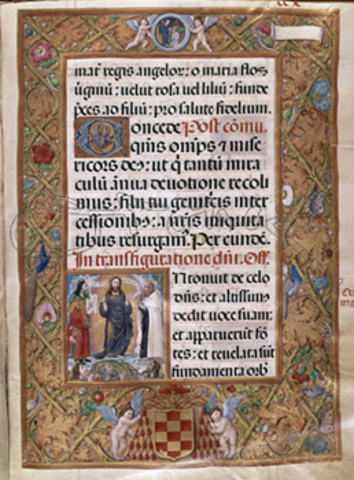 mat̃ regis angelor̃: o maria flos
ũginũ: uelut rosa uel liliũ: funde
p̃ces ad filiũ: pro salute fidelium.
Concede Post cõmu.
quĩs om̃ps ⁊ mise
ricors deꝰ: ut q̃ tantũ mira
culũ ãnua deuotione recoli
mus: filij tui genitcis inter
cessionibꝰ: a nr̃is iniquita
tibus resurgamꝰ. Per eunde.
In transfiguratione dñi. Off.
Intonuit de celo
dñs: et altissimꝰ
dedit uocẽ suam:
et apparuerũt fõ
tes: et reuelata sũt
fundamenta orbꝭ